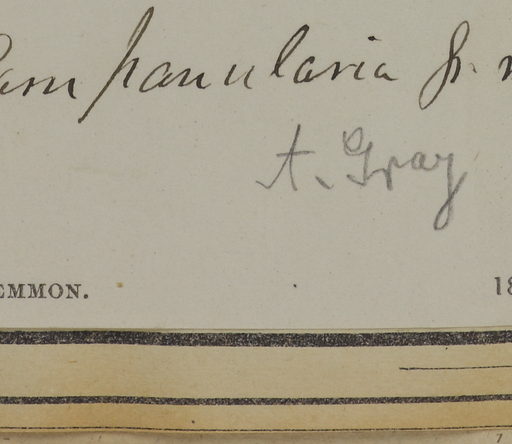 Campanularia Gr. n
A. Gray
EMMON. 18